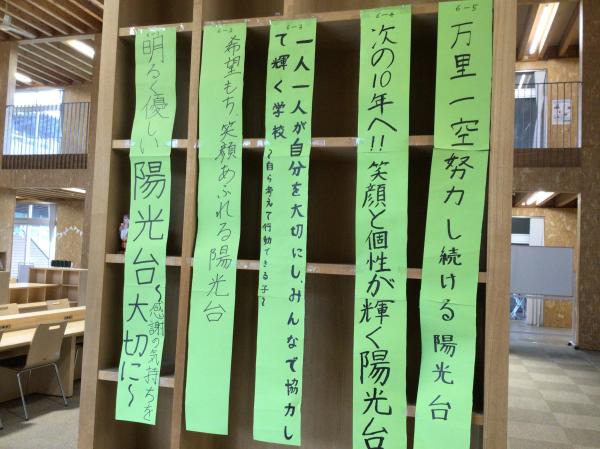 6-5
万里一空努力し続ける陽光台
6-4
次の10年へ!!笑顔と個性が輝く陽光台
6-3
一人一人が自分を大切にし、みんなで協力し
て輝く学校
~自ら考えて行動できる子~
6-2
希望もち笑顔あふれる陽光台
明るく優しい陽光台
~感謝の気持ちを
大切に~